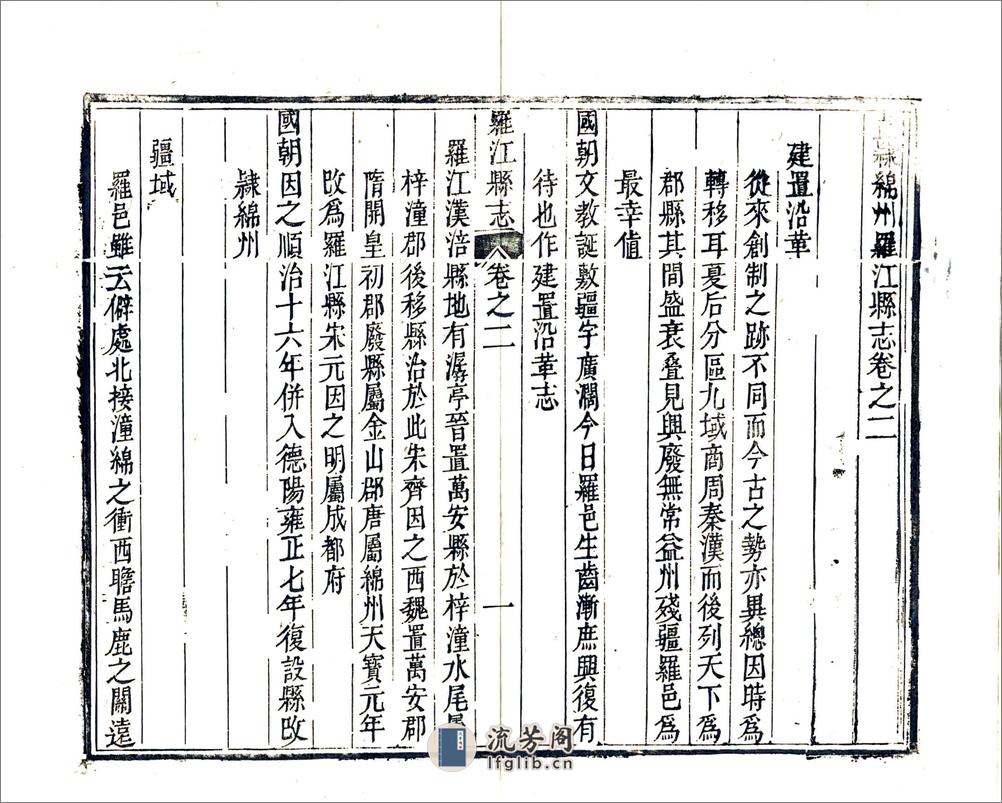 隸綿州羅江縣志卷之二
建置沿革
從來創制之跡不同而今古之勢亦異總因時為
轉移耳夏后分區九域商周秦漢而後列天下為
郡縣其間盛衰叠見興廢無常益州殘疆羅邑為
最幸值
國朝文教誕敷疆宇廣濶今日羅邑生齒漸庶興復有
待也作建置沿革志
羅江縣志 卷之二 一
羅江漢涪縣地有潺亭晉置萬安縣於梓潼水尾屬
梓潼郡後移縣治於此宋齊因之西魏置萬安郡
隋開皇初郡廢縣屬金山郡唐屬綿州天寶元年
改為羅江縣宋元因之明屬成都府
國朝因之順治十六年併入德陽雍正七年復設縣改
隸綿州
疆域
羅邑雖云僻處北接潼綿之衝西瞻馬鹿之關遠
流芳阁
lfglib.cn